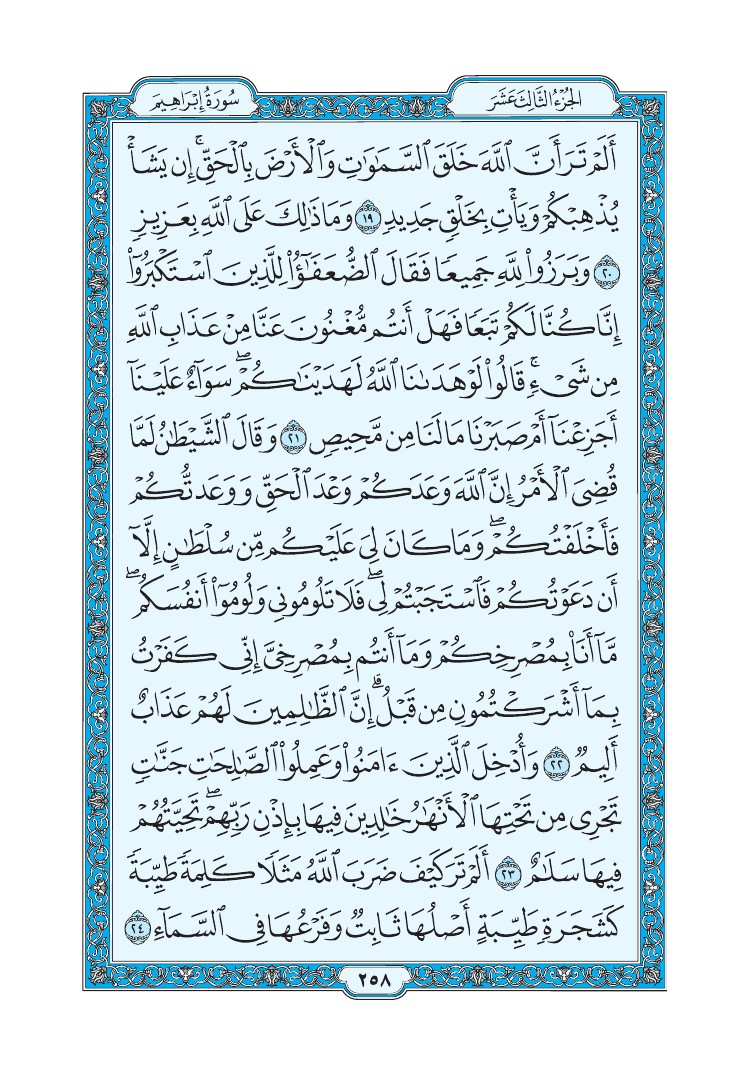 سُورَةُ إِبْرَاهِيمَ
الجُزْءُ الثَّالِثَ عَشَرَ
أَلَمْ تَرَ أَنَّ ٱللَّهَ خَلَقَ ٱلسَّمَٰوَٰتِ وَٱلْأَرْضَ بِٱلْحَقِّ ۚ إِن يَشَأْ
يُذْهِبْكُمْ وَيَأْتِ بِخَلْقٍ جَدِيدٍ ١٩ وَمَا ذَٰلِكَ عَلَى ٱللَّهِ بِعَزِيزٍ
٢٠ وَبَرَزُوا۟ لِلَّهِ جَمِيعًا فَقَالَ ٱلضُّعَفَٰٓؤُا۟ لِلَّذِينَ ٱسْتَكْبَرُوٓا۟
إِنَّا كُنَّا لَكُمْ تَبَعًا فَهَلْ أَنتُم مُّغْنُونَ عَنَّا مِنْ عَذَابِ ٱللَّهِ
مِن شَىْءٍ ۚ قَالُوا۟ لَوْ هَدَىٰنَا ٱللَّهُ لَهَدَيْنَٰكُمْ ۖ سَوَآءٌ عَلَيْنَآ
أَجَزِعْنَآ أَمْ صَبَرْنَا مَا لَنَا مِن مَّحِيصٍ ٢١ وَقَالَ ٱلشَّيْطَٰنُ لَمَّا
قُضِىَ ٱلْأَمْرُ إِنَّ ٱللَّهَ وَعَدَكُمْ وَعْدَ ٱلْحَقِّ وَوَعَدتُّكُمْ
فَأَخْلَفْتُكُمْ ۖ وَمَا كَانَ لِىَ عَلَيْكُم مِّن سُلْطَٰنٍ إِلَّآ
أَن دَعَوْتُكُمْ فَٱسْتَجَبْتُمْ لِى ۖ فَلَا تَلُومُونِى وَلُومُوٓا۟ أَنفُسَكُم ۖ
مَّآ أَنَا۠ بِمُصْرِخِكُمْ وَمَآ أَنتُم بِمُصْرِخِىَّ ۖ إِنِّى كَفَرْتُ
بِمَآ أَشْرَكْتُمُونِ مِن قَبْلُ ۗ إِنَّ ٱلظَّٰلِمِينَ لَهُمْ عَذَابٌ
أَلِيمٌ ٢٢ وَأُدْخِلَ ٱلَّذِينَ ءَامَنُوا۟ وَعَمِلُوا۟ ٱلصَّٰلِحَٰتِ جَنَّٰتٍ
تَجْرِى مِن تَحْتِهَا ٱلْأَنْهَٰرُ خَٰلِدِينَ فِيهَا بِإِذْنِ رَبِّهِمْ ۖ تَحِيَّتُهُمْ
فِيهَا سَلَٰمٌ ٢٣ أَلَمْ تَرَ كَيْفَ ضَرَبَ ٱللَّهُ مَثَلًا كَلِمَةً طَيِّبَةً
كَشَجَرَةٍ طَيِّبَةٍ أَصْلُهَا ثَابِتٌ وَفَرْعُهَا فِى ٱلسَّمَآءِ ٢٤
٢٥٨